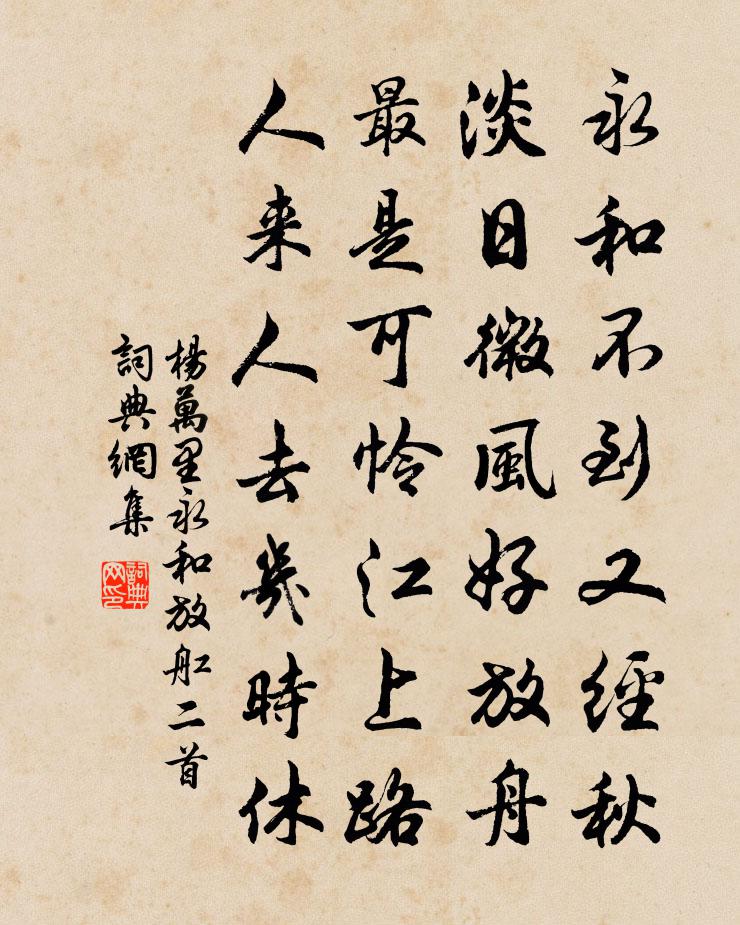 永和不到又經秋
淡日微風好放舟
最是可怜江上路
人来人去幾時休
楊萬里永和放舡二首
詞典網集
詞典网印